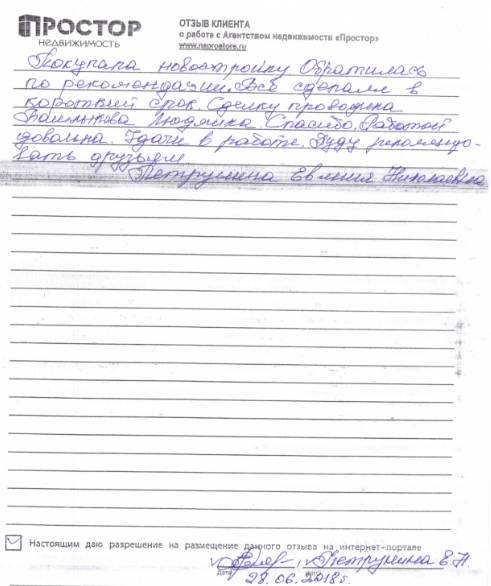 ПРОСТОР
НЕДВИЖИМОСТЬ
ОТЗЫВ КЛИЕНТА
о работе с Агентством недвижимости «Простор»
www.naprostore.ru
Покупала новостройку Обратилась
по рекомендации. Всё сделали в
короткий срок. Сделку проводила
Людмила. Спасибо. Работой
довольна. Удачи в работе. Буду рекомендо-
вать друзьям
Петрунина Евгения Николаевна
Настоящим даю разрешение на размещение данного отзыва на интернет-портале
Петрунина Е.Н.
Дата
28.06.2018г.